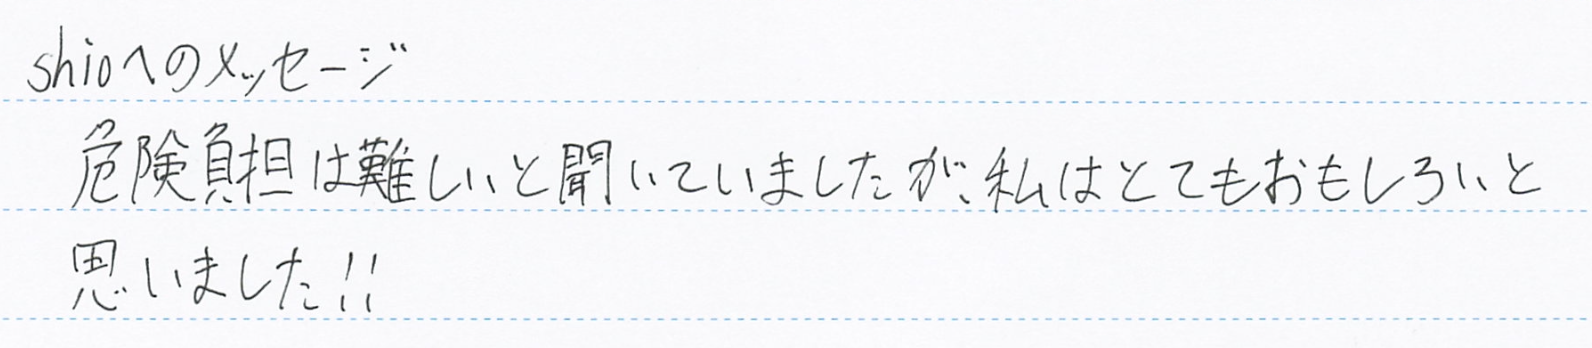 shioへのメッセージ
危険負担は難しいと聞いていましたが、私はとてもおもしろいと
思いました!!